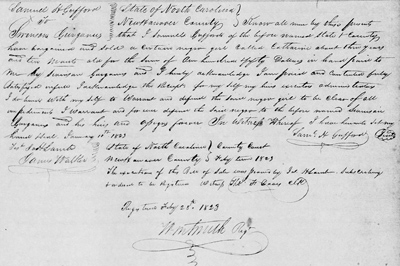 Samuel H Gafford
to
Swenson Gurganus
State of North Carolina
New Hanover County } Know all men by these presents
that I Samuel H Gafford of the before named State & County
have bargained and Sold a certain negro girl Called Catharine about three years
and ten Months old for the Sum of One hundred fifty Dollars in hand paid to
Me by Swenson Gurganus and I hereby acknowledge I am paid and Contented fully
Satisfied I acknowledge the Receipt for my Self my heirs executors administrators
I do bind with my Self to Warrant and defend the Said negro girl to be Clear of all
I Warrant and for ever defend the Said negro to the before named Swenson
Gurganus and his heirs and assigns forever In Witness Whereof I have hereunto Set my
hand & Seal January 10th 1823
Saml H Gafford (Seal)
James Walker
State of North Carolina } County Court
New Hanover County } Feby term 1823
The execution of this Bill of Sale was proven by
& ordered to be Registered
Registered Feby 22d 1823